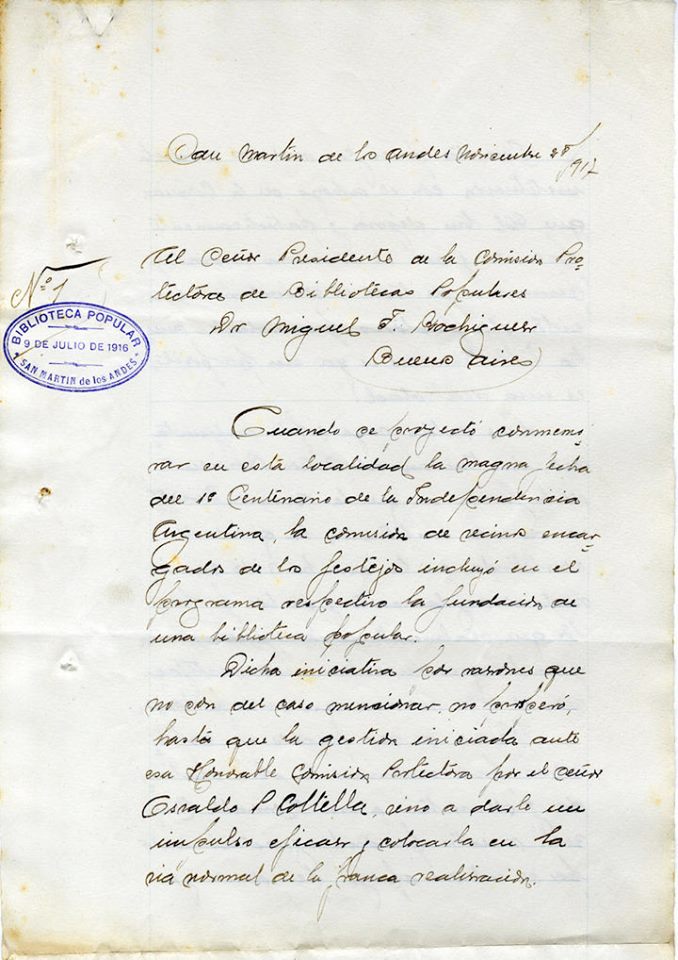 San Martin de los Andes Noviembre 28/917
Al Señor Presidente de la Comisión Pro-
tectora de Bibliotecas Populares
Nº 1
Dr Miguel F. Rodriguez
Buenos Aires
BIBLIOTECA POPULAR
9 DE JULIO DE 1916
SAN MARTIN de los ANDES
Cuando se proyectó conmemo
rar en está localidad la magna fecha
del 1º Centenario de la Independencia
Argentina, la comisión de vecinos encar-
gados de los festejos incluyó en el
programa respectivo la fundación de
una biblioteca popular.
Dicha iniciativa por razones que
no son del caso mencionar, no prosperó,
hasta que la gestión iniciada ante
esa Honorable Comisión Protectora por el señor
Osvaldo P Cottella, vino a darle un
impulso eficaz y colocarla en la
via normal de la franca realisración.